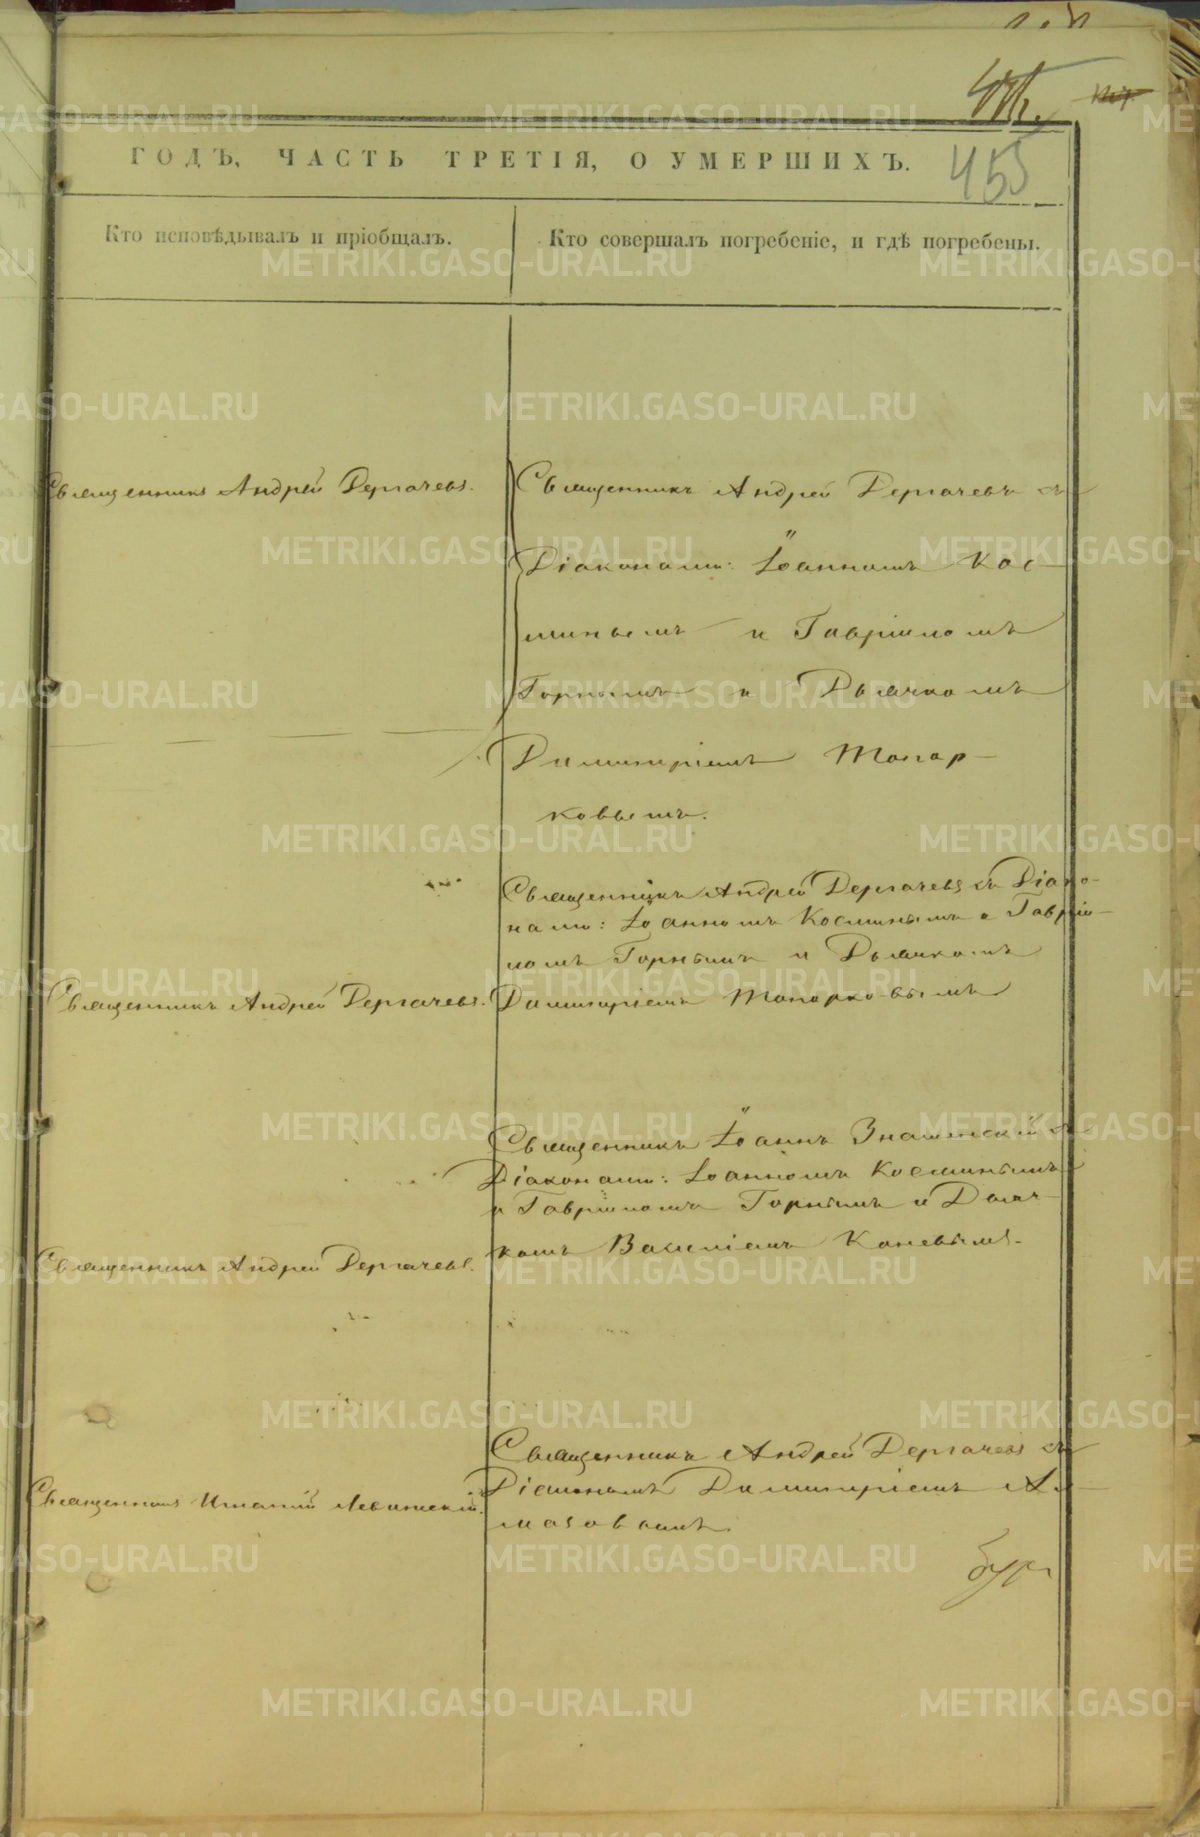 455
ГОДЪ, ЧАСТЬ ТРЕТІЯ, О УМЕРШИХЪ.
Кто исповѣдывалъ и пріобщалъ.
Кто совершалъ погребеніе, и гдѣ погребены.
Священникъ Андрей Дергачевъ.
Священникъ Андрей Дергачевъ съ
Діаконами: Іоанномъ Кос-
минымъ и Гавріиломъ
Горнымъ и Дьячкомъ
Димитріемъ Топор-
ковымъ.
Священникъ Андрей Дергачевъ съ Діако-
нами: Іоанномъ Косминымъ и Гавріи-
ломъ Горнымъ и Дьячкомъ
Димитріемъ Топорковымъ
Священникъ Андрей Дергачевъ.
Священникъ Іоаннъ Знаменскій съ
Діаконами: Іоанномъ Косминымъ
и Гавріиломъ Горнымъ и Дьяч-
комъ Василіемъ Коневымъ.
Священникъ Андрей Дергачевъ.
Священникъ Андрей Дергачевъ съ
Діакономъ Димитріемъ Ал-
мазовымъ.
Священникъ Игнатій Левитскій.
METRIKI.GASO-URAL.RU